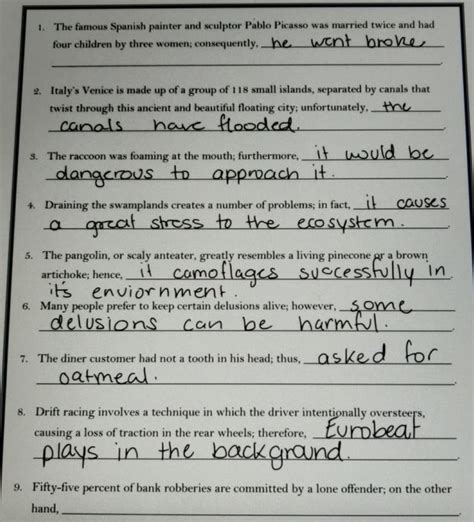 1. The famous Spanish painter and sculptor Pablo Picasso was married twice and had
four children by three women; consequently, he went broke
2. Italy's Venice is made up of a group of 118 small islands, separated by canals that
twist through this ancient and beautiful floating city; unfortunately, the
canals have flooded.
3. The raccoon was foaming at the mouth; furthermore, it would be
dangerous to approach it.
4. Draining the swamplands creates a number of problems; in fact, it causes
a great stress to the ecosystem.
5. The pangolin, or scaly anteater, greatly resembles a living pinecone or a brown
artichoke; hence, it camoflages successfully in
it's enviornment.
6. Many people prefer to keep certain delusions alive; however, some
delusions can be harmful.
7. The diner customer had not a tooth in his head; thus, asked for
oatmeal.
8. Drift racing involves a technique in which the driver intentionally oversteers,
causing a loss of traction in the rear wheels; therefore, Eurobeat
plays in the background.
9. Fifty-five percent of bank robberies are committed by a lone offender; on the other
hand,